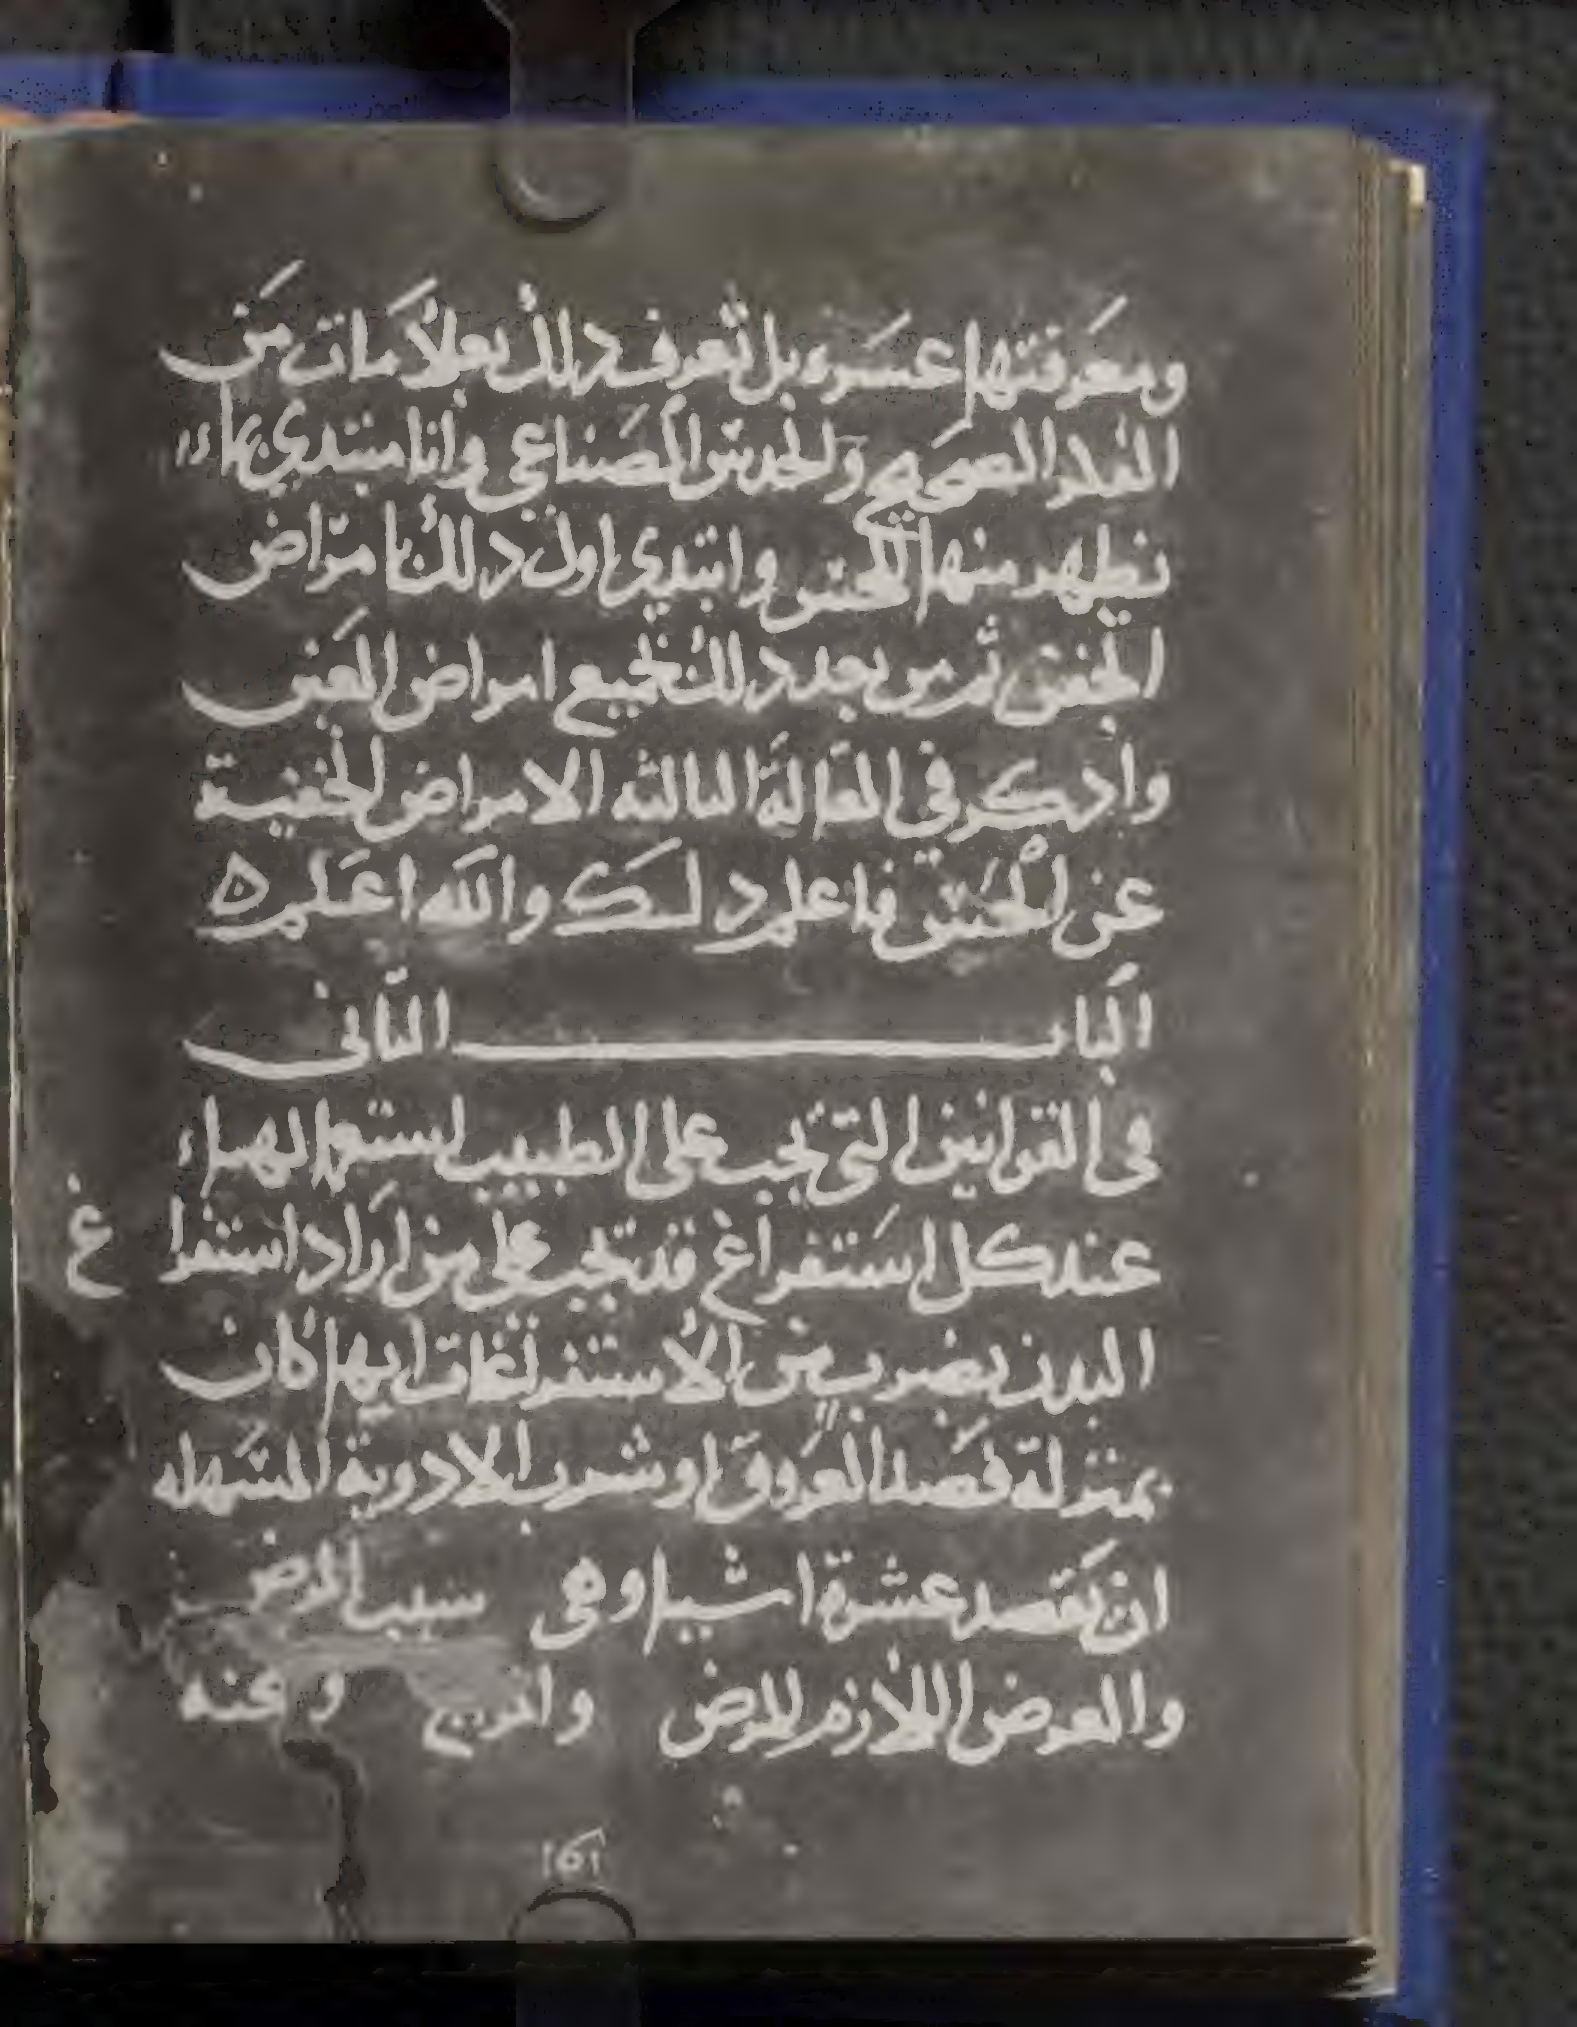 ومعرفتها عسره بل تعرف ذلك بعلامات من
النظر الصحيح والحدس الصناعي وانا مبتدي بما
يظهر منها للحس وابتدي اول ذلك بامراض
الجفن ثم من بعد ذلك بجميع امراض العين
واذكر في المقالة الثالثه الامراض الخفية
عن الحس فاعلم ذلك والله اعلم ه
الباب الثاني
في القوانين التي تجب على الطبيب استعمالها
عند كل استفراغ قد تجب على من اراد استفراغ
البدن بضرب من الاستفراغات ايها كان
بمنزلة فصد العروق او شرب الادوية المسهله
ان يقصد عشرة اشيا وهي سبب المرض
والعرض اللازم للمرض والمزاج وسحنه
(6)